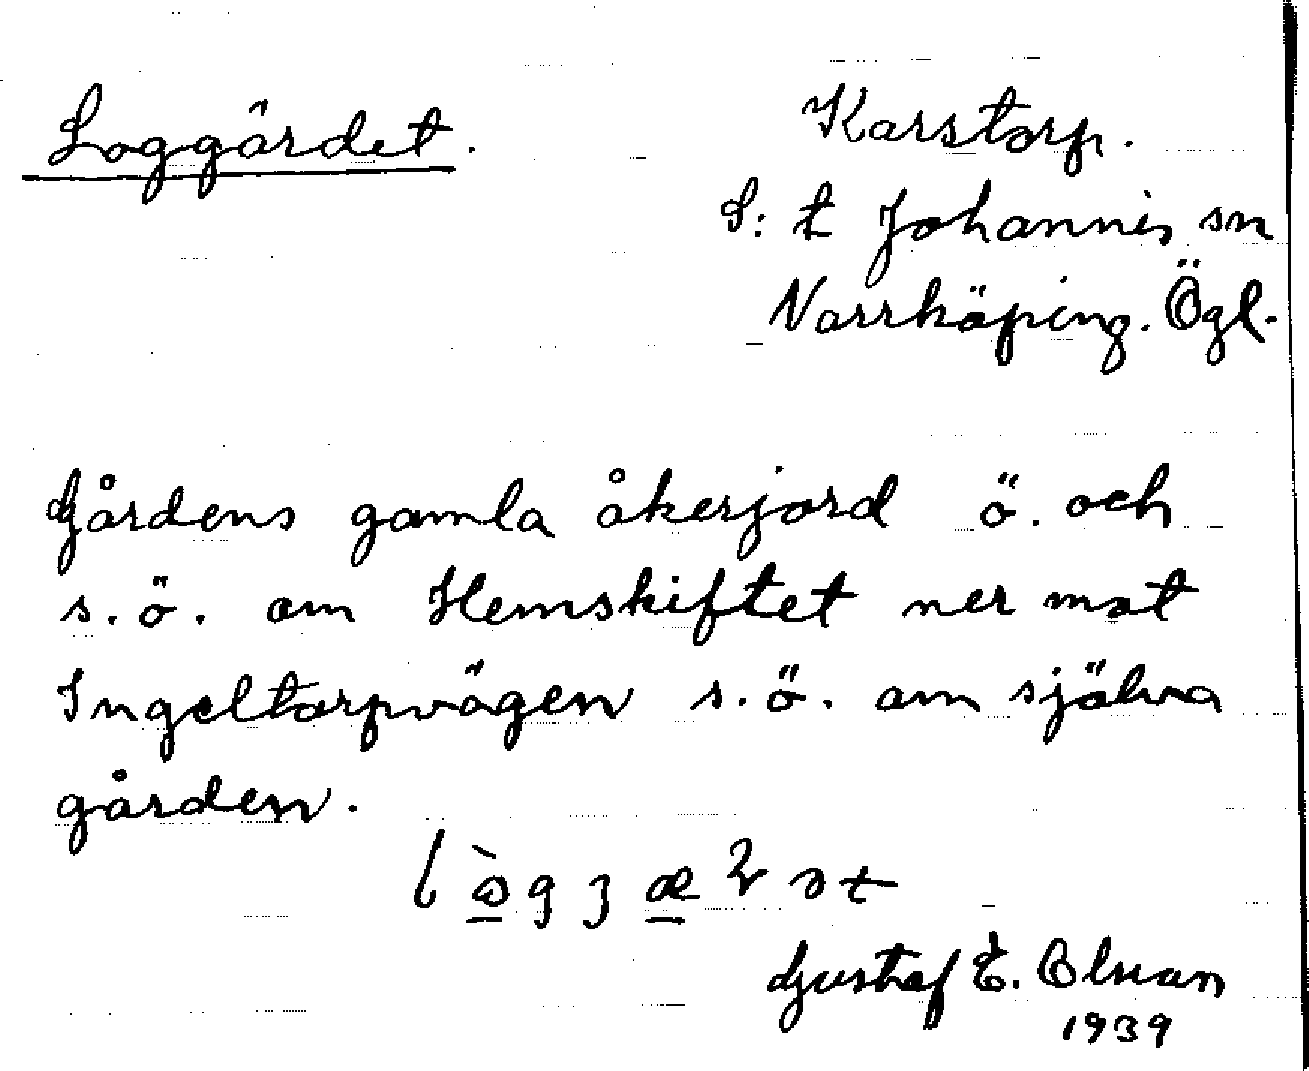 Loggärdet.
Karstorp.
S:t Johannis sn
Norrköping. Ögl.
Gårdens gamla åkerjord ö. och
s.ö. om Hemskiftet ner mot
Ingeltorpvägen s.ö. om själva
gården.
Gustaf E. Olson
1939